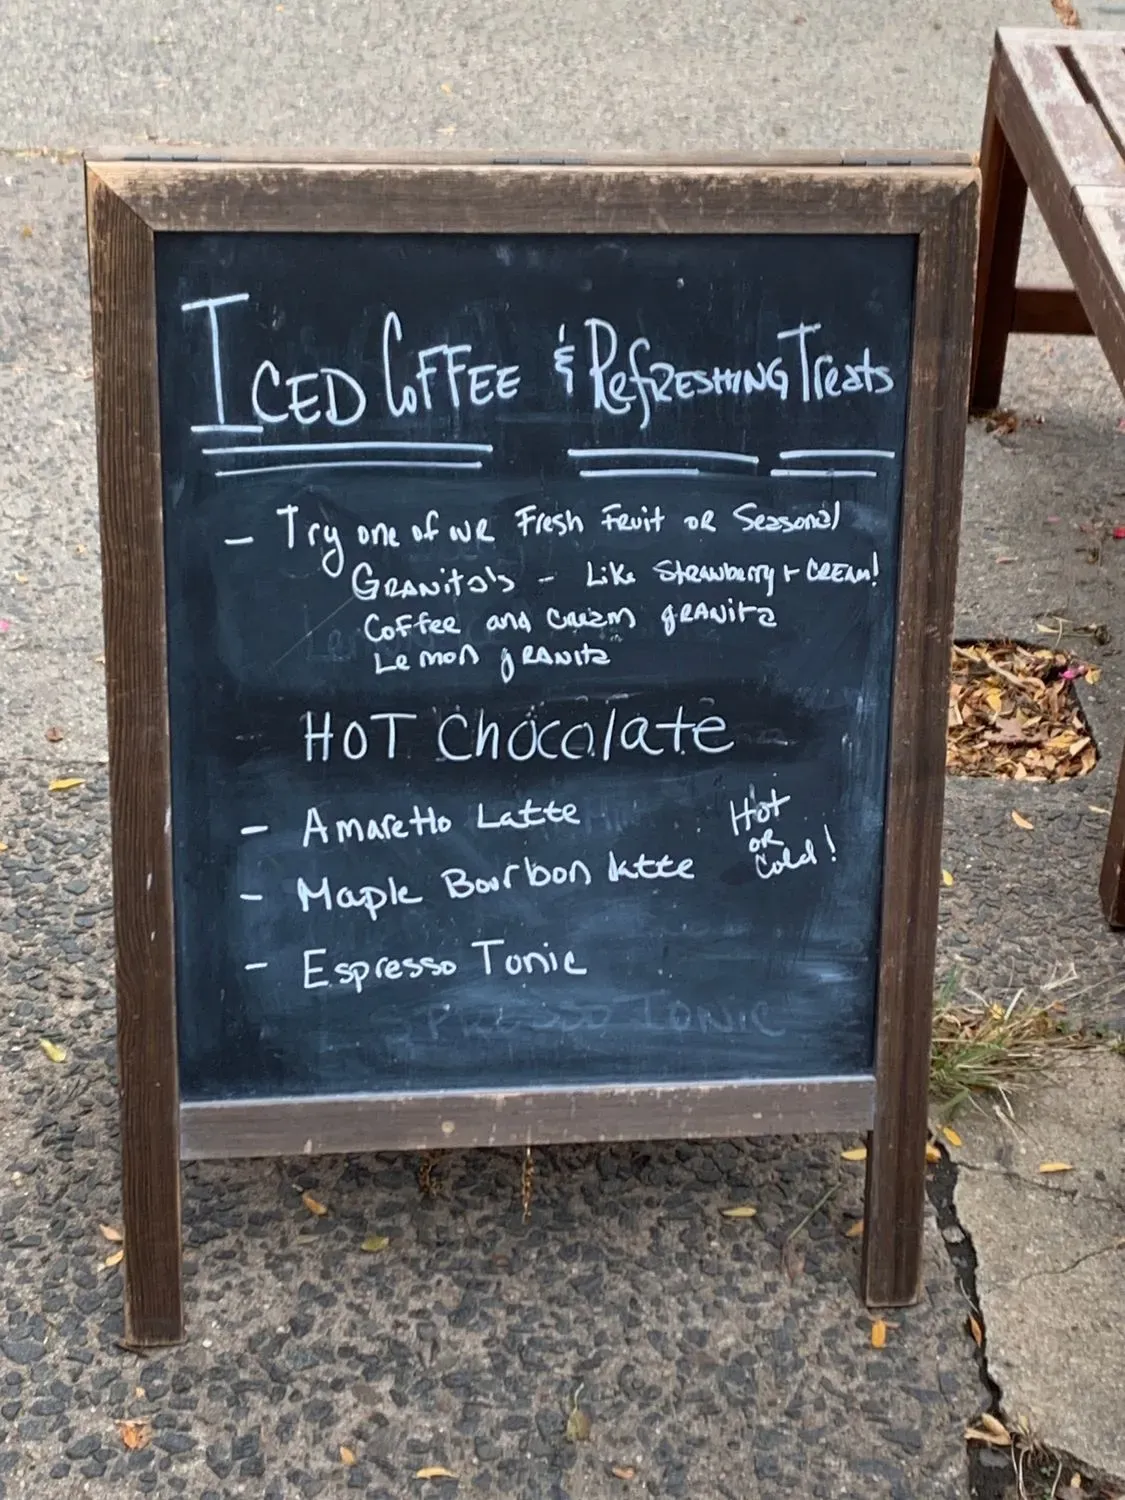 ICED COFFEE & REFRESHING Treats
- Try one of our Fresh Fruit or Seasonal
GRANITA'S - Like Strawberry + CREAM!
Coffee and Cream gRANITa
Lemon gRANITa
HOT Chocolate
- Amaretto Latte
- Maple Bourbon latte
Hot
or
Cold!
- Espresso Tonic
SPRESSO TONIC